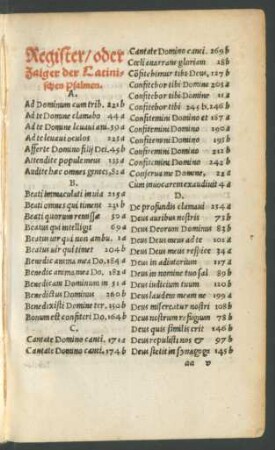 Register/ oder
Zaiger der Latini-
schen Psalmen.
A.
Ad Dominum cum trib. 221 b
Ad te Domine clamabo 44 a
Ad te Domine leuaui ani. 39 a
Ad te leuaui oculos
Afferte Domino filij Dei. 45 b
Attendite popule meus
Audite hæc omnes gentes, 82 a
B.
Beati immaculati in uia 259 a
Beati omnes qui timent
Beati quorum remissæ
Beatus qui intelligit 69 a
Beatus uir qui non ambu. 1 a
Beatus uir qui timet
Benedic anima mea Do. 184 a
Benedic anima mea Do. 182 a
Benedicam Dominum in 51 a
Benedictus Dominus 260 b
Benedixisti Domine ter. 159 b
Bonum est confiteri Do. 164 b
C.
Cantate Domino canti. 171 a
Cantate Domino canti. 174 b
Cantate Domino canti. 269 b
Cœli enarrant gloriam 28 b
Cōfitebimur tibi Deus, 127 b
Confitebor tibi Domine 202 a
Confitebor tibi Domine 11 a
Confitebor tibi 245 b. 146 b
Confitemini Domino et 187 a
Confitemini Domino 190 a
Confitemini Domino 195 b
Confitemini Domino
Confitemini Domino
Conserua me Domine, 22 a
Cum inuocarem exaudiuit 4 a
D.
De profundis clamaui 254 a
Deus auribus nostris 73 b
Deus Deorum Dominus 83 b
Deus Deus meus ad te 101 a
Deus Deus meus respice 34 a
Deus in adiutorium 117 a
Deus in nomine tuo sal 89 a
Deus iudicium tuum
Deus laudem meam ne 199 a
Deus misereatur nostri 108 a
Deus nostrum refugium 78 b
Deus quis similis erit 146 b
Deus repulisti nos & 97 b
Deus stetit in synagoga 145 b
aa v